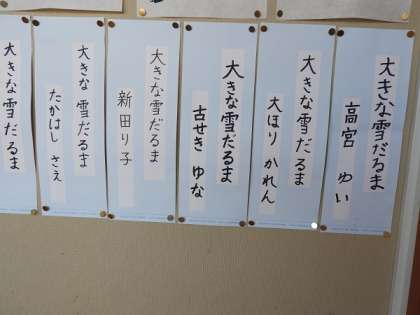 大きな雪だるま
高宮 ゆい
大きな雪だるま
大ほり かれん
大きな雪だるま
古せき ゆな
大きな雪だるま
新田り子
大きな雪だるま
たかはし さえ
大きな雪だるま